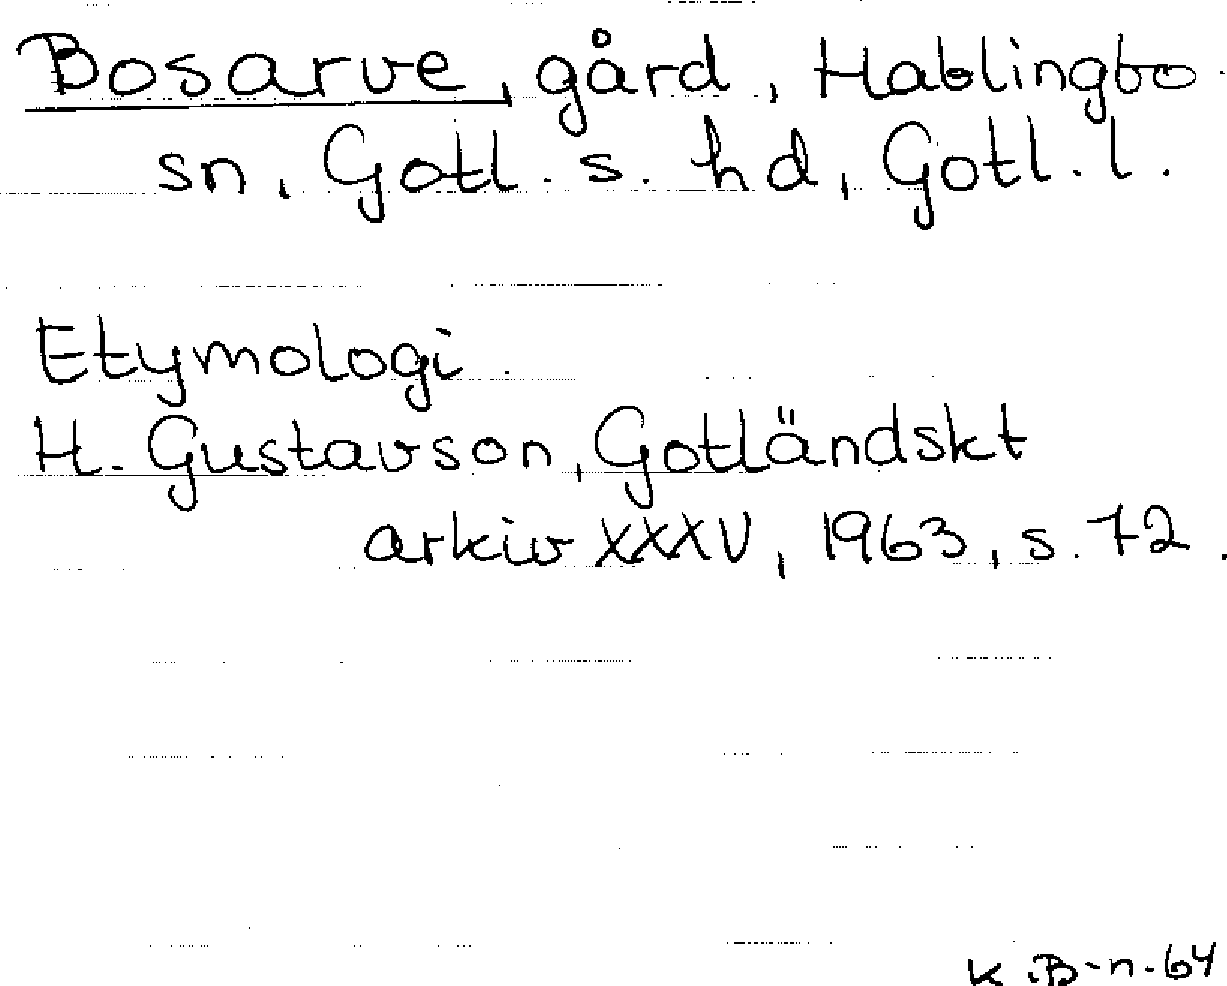 Bosarve, gård, Hablingbo
sn, Gotl. s. hd, Gotl. l.
Etymologi
H. Gustavson, Gotländskt
arkiv XXXV, 1963, s. 72.
K.B-n-64